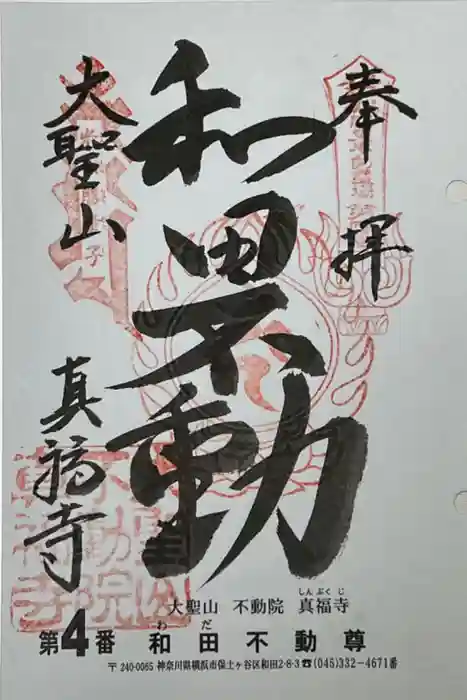 奉拝
和田不動
大聖山
真福寺
大聖山 不動院 真福寺
しんぷくじ
わだ
第4番 和田不動尊
〒240-0065 神奈川県横浜市保土ヶ谷区和田2-8-3 ☎(045)332-4671番